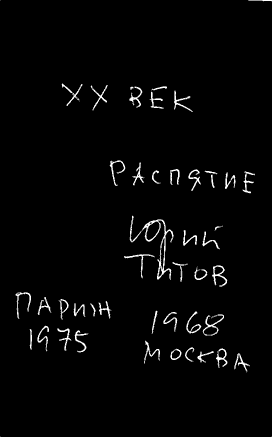 XX ВЕК
РАСПЯТИЕ
Юрий
Титов
ПАРИЖ
1975
1968
МОСКВА